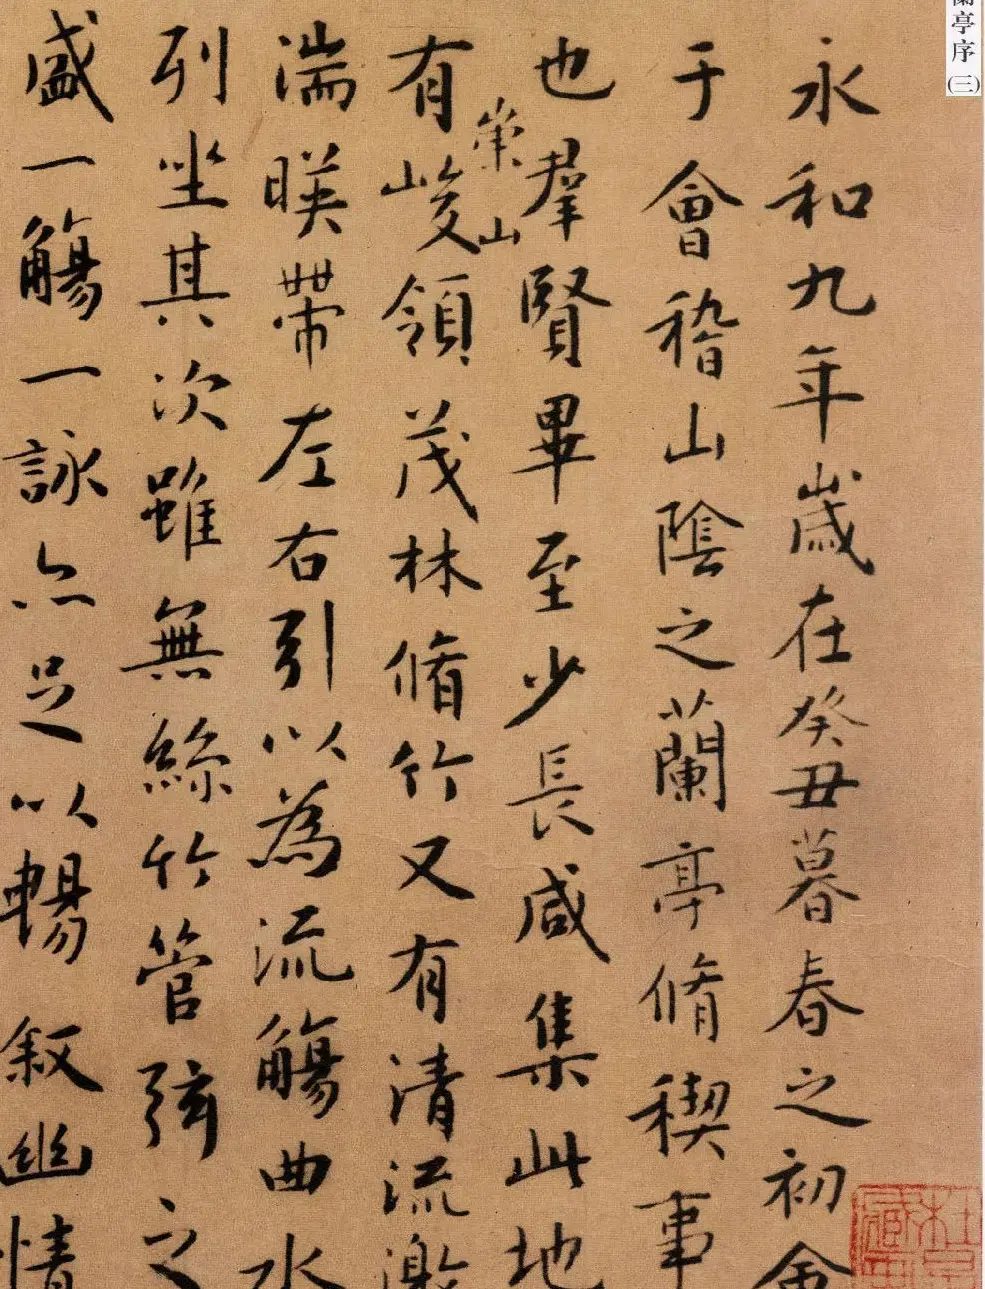 蘭亭序(三)
永和九年歲在癸丑暮春之初會
于會稽山陰之蘭亭脩禊事
也羣賢畢至少長咸集此地
崇山
有峻領茂林脩竹又有清流激
湍暎帶左右引以為流觴曲水
列坐其次雖無絲竹管弦之
盛一觴一詠亦足以暢叙幽情